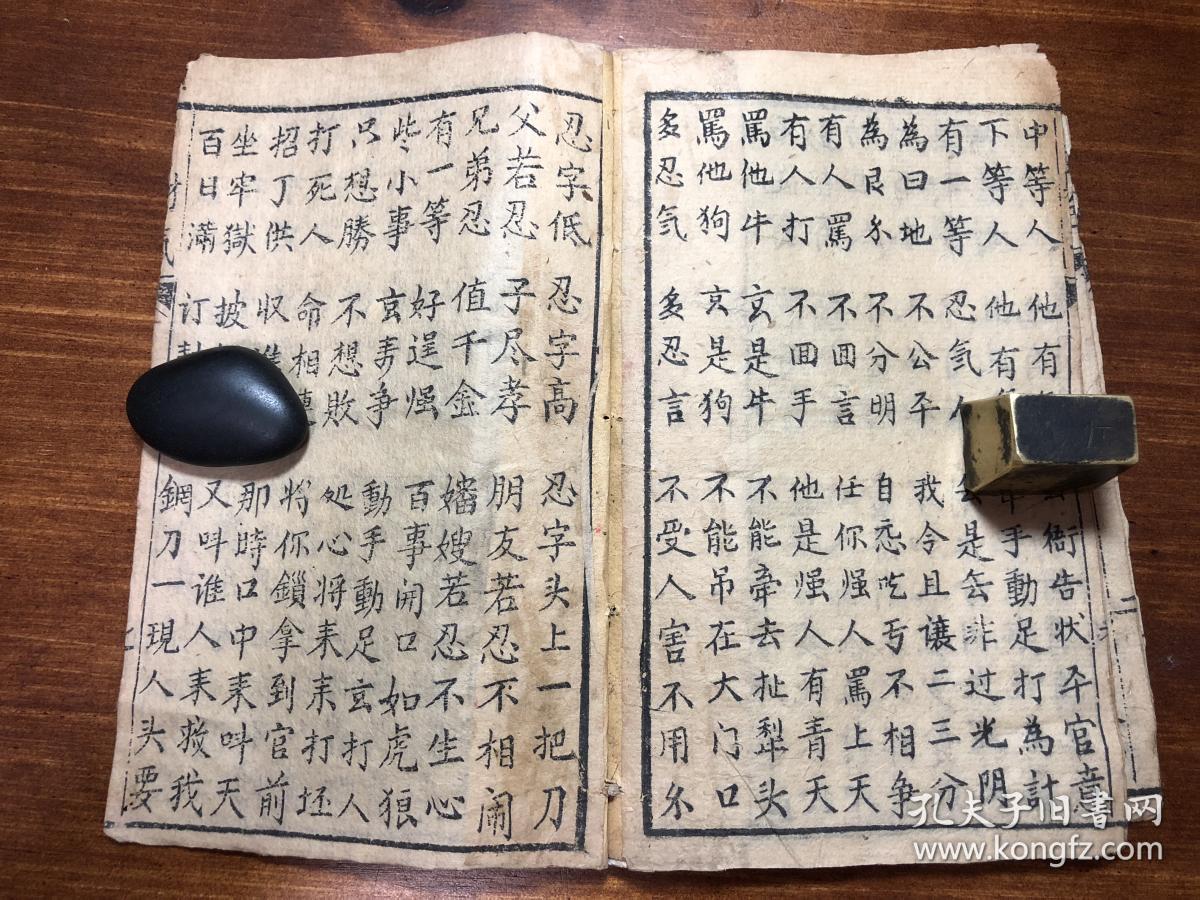 中等人 他有 衙告状夲官
下等人 他有 手動足打為計
有一等 忍氣人 去是去非过光阴
為曰地 不公平 我今且讓二三分
為艮尒 不分明 自忝吃亏不相争
有人罵 不囬言 任你强人罵上天
有人打 不囬手 他是强人有青天
罵他牛 玄是牛 不能牵去扯犁头
罵他狗 玄是狗 不能吊在大门口
多忍气 多忍言 不受人害不用尒
忍字低 忍字高 忍字头上一把刀
父若忍 子尽孝 朋友若忍不相闹
兄弟忍 值千金 嬸嫂若忍不生心
有一等 好逞强 百事開口如虎狼
些小事 玄弄争 動手動足玄打人
只想勝 不想敗 处心将耒耒打坯
打死人 命相連 将你鎖拿到官前
招丁供 収 那時口中耒叫天
坐牢獄 披 又叫谁人耒救我
百日滿 订 鋼刀一現人头要
孔夫子旧書网
www.kongfz.com